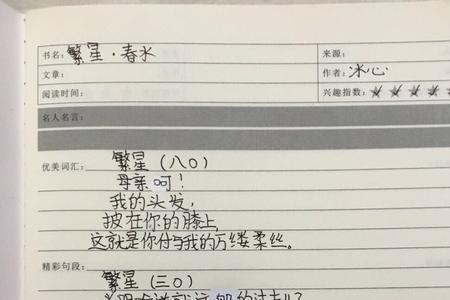 书名：繁星·春水 来源：
文章： 作者：冰心
阅读时间： 兴趣指数：
名人名言：
优美词汇： 繁星（八〇）
母亲呵！
我的头发，
披在你的膝上，
这就是你付与我的万缕柔丝。
精彩句段： 繁星（三〇）